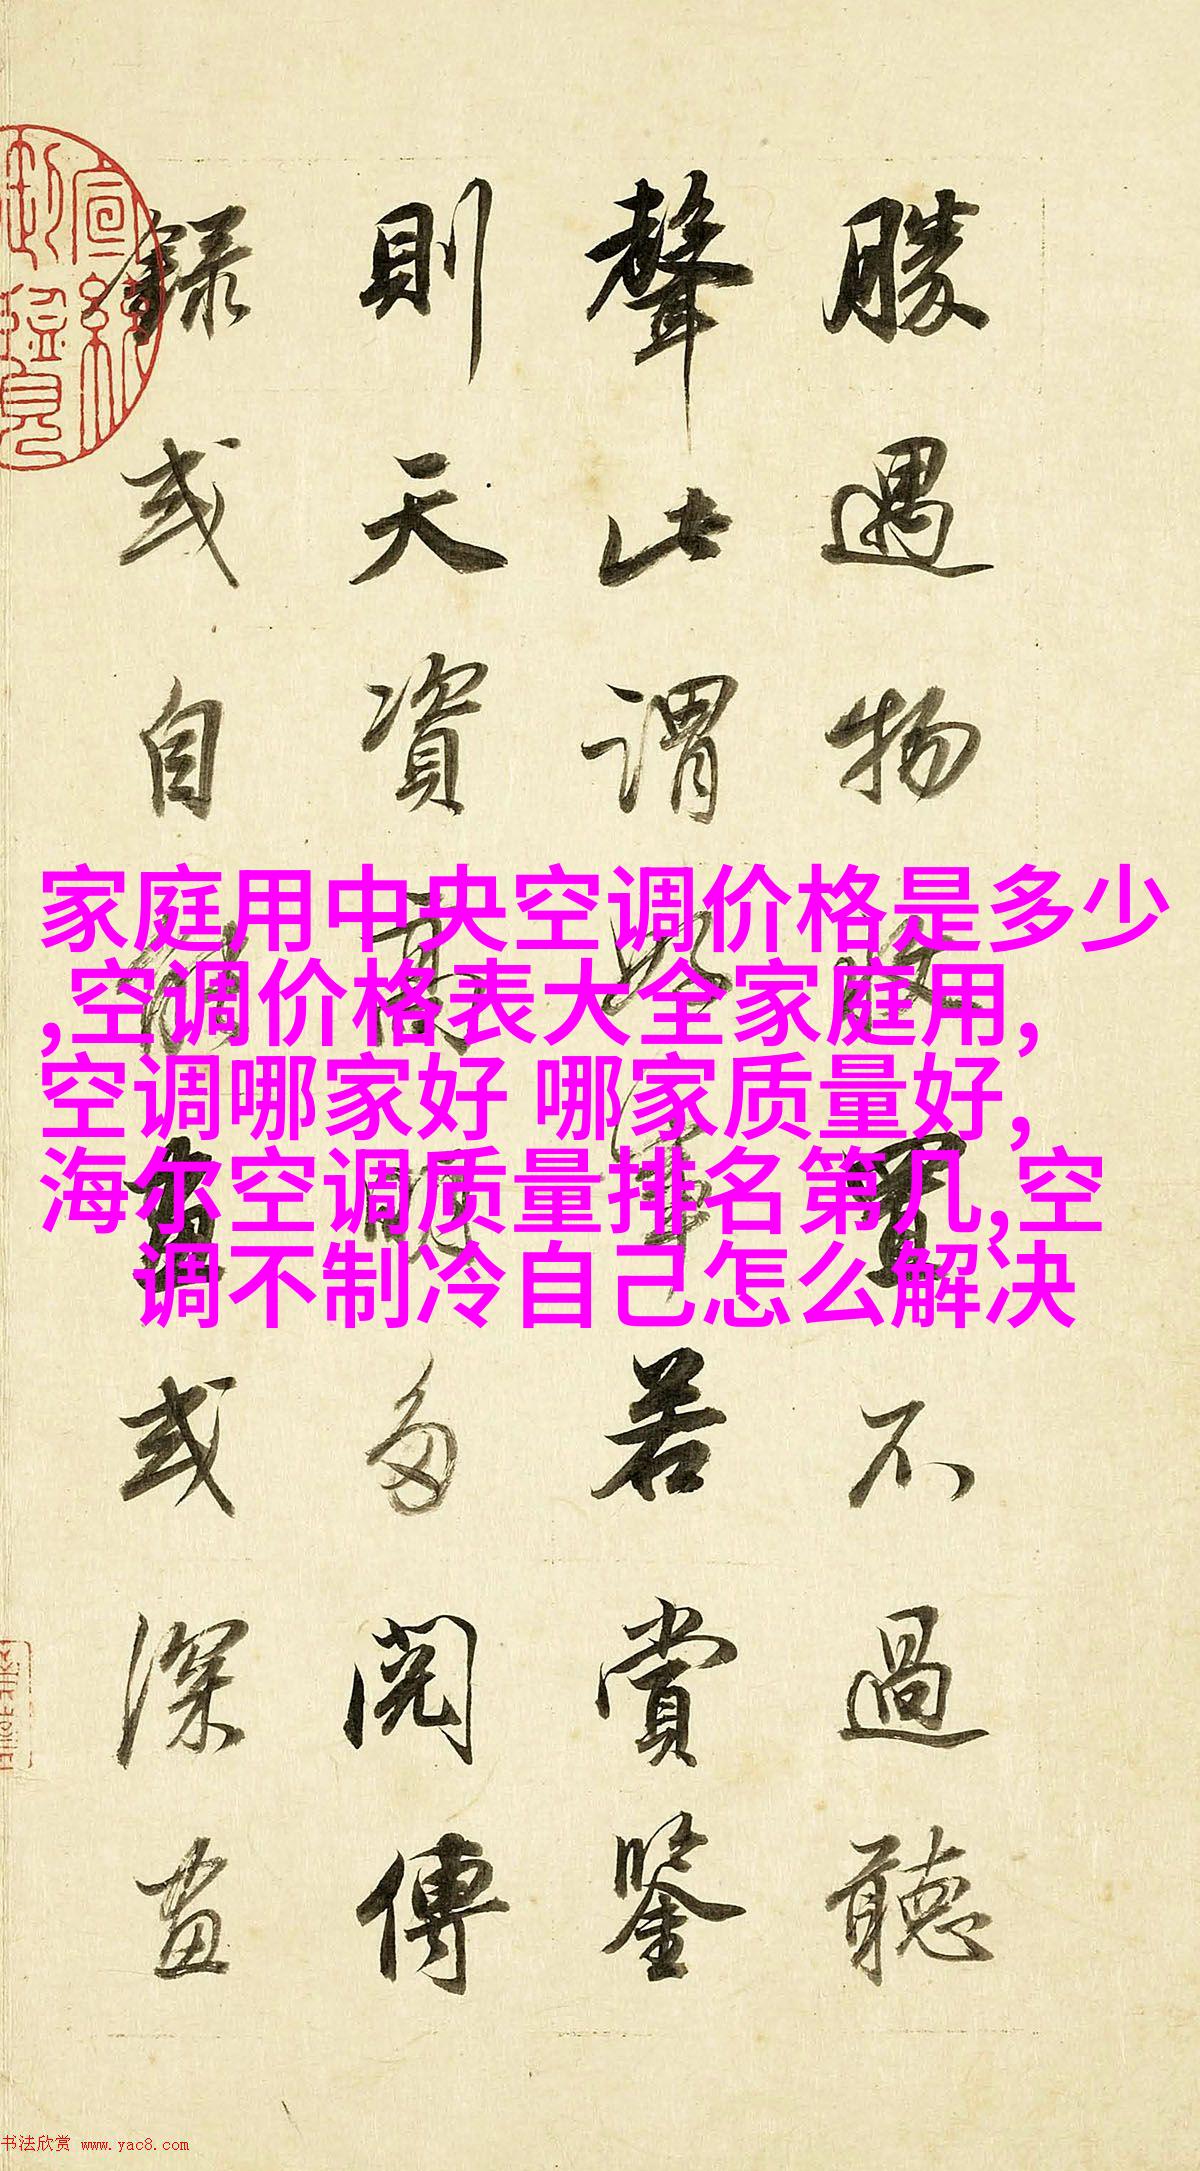 勝遇物收置不過聽
聲此謂好事若賞鑒
則天資高明多閱傳
錄或自能畫或深畫
家庭用中央空调价格是多少
,空调价格表大全家庭用,
空调哪家好 哪家质量好,
海尔空调质量排名第几,空
调不制冷自己怎么解决
书法欣赏 www.yac8.com